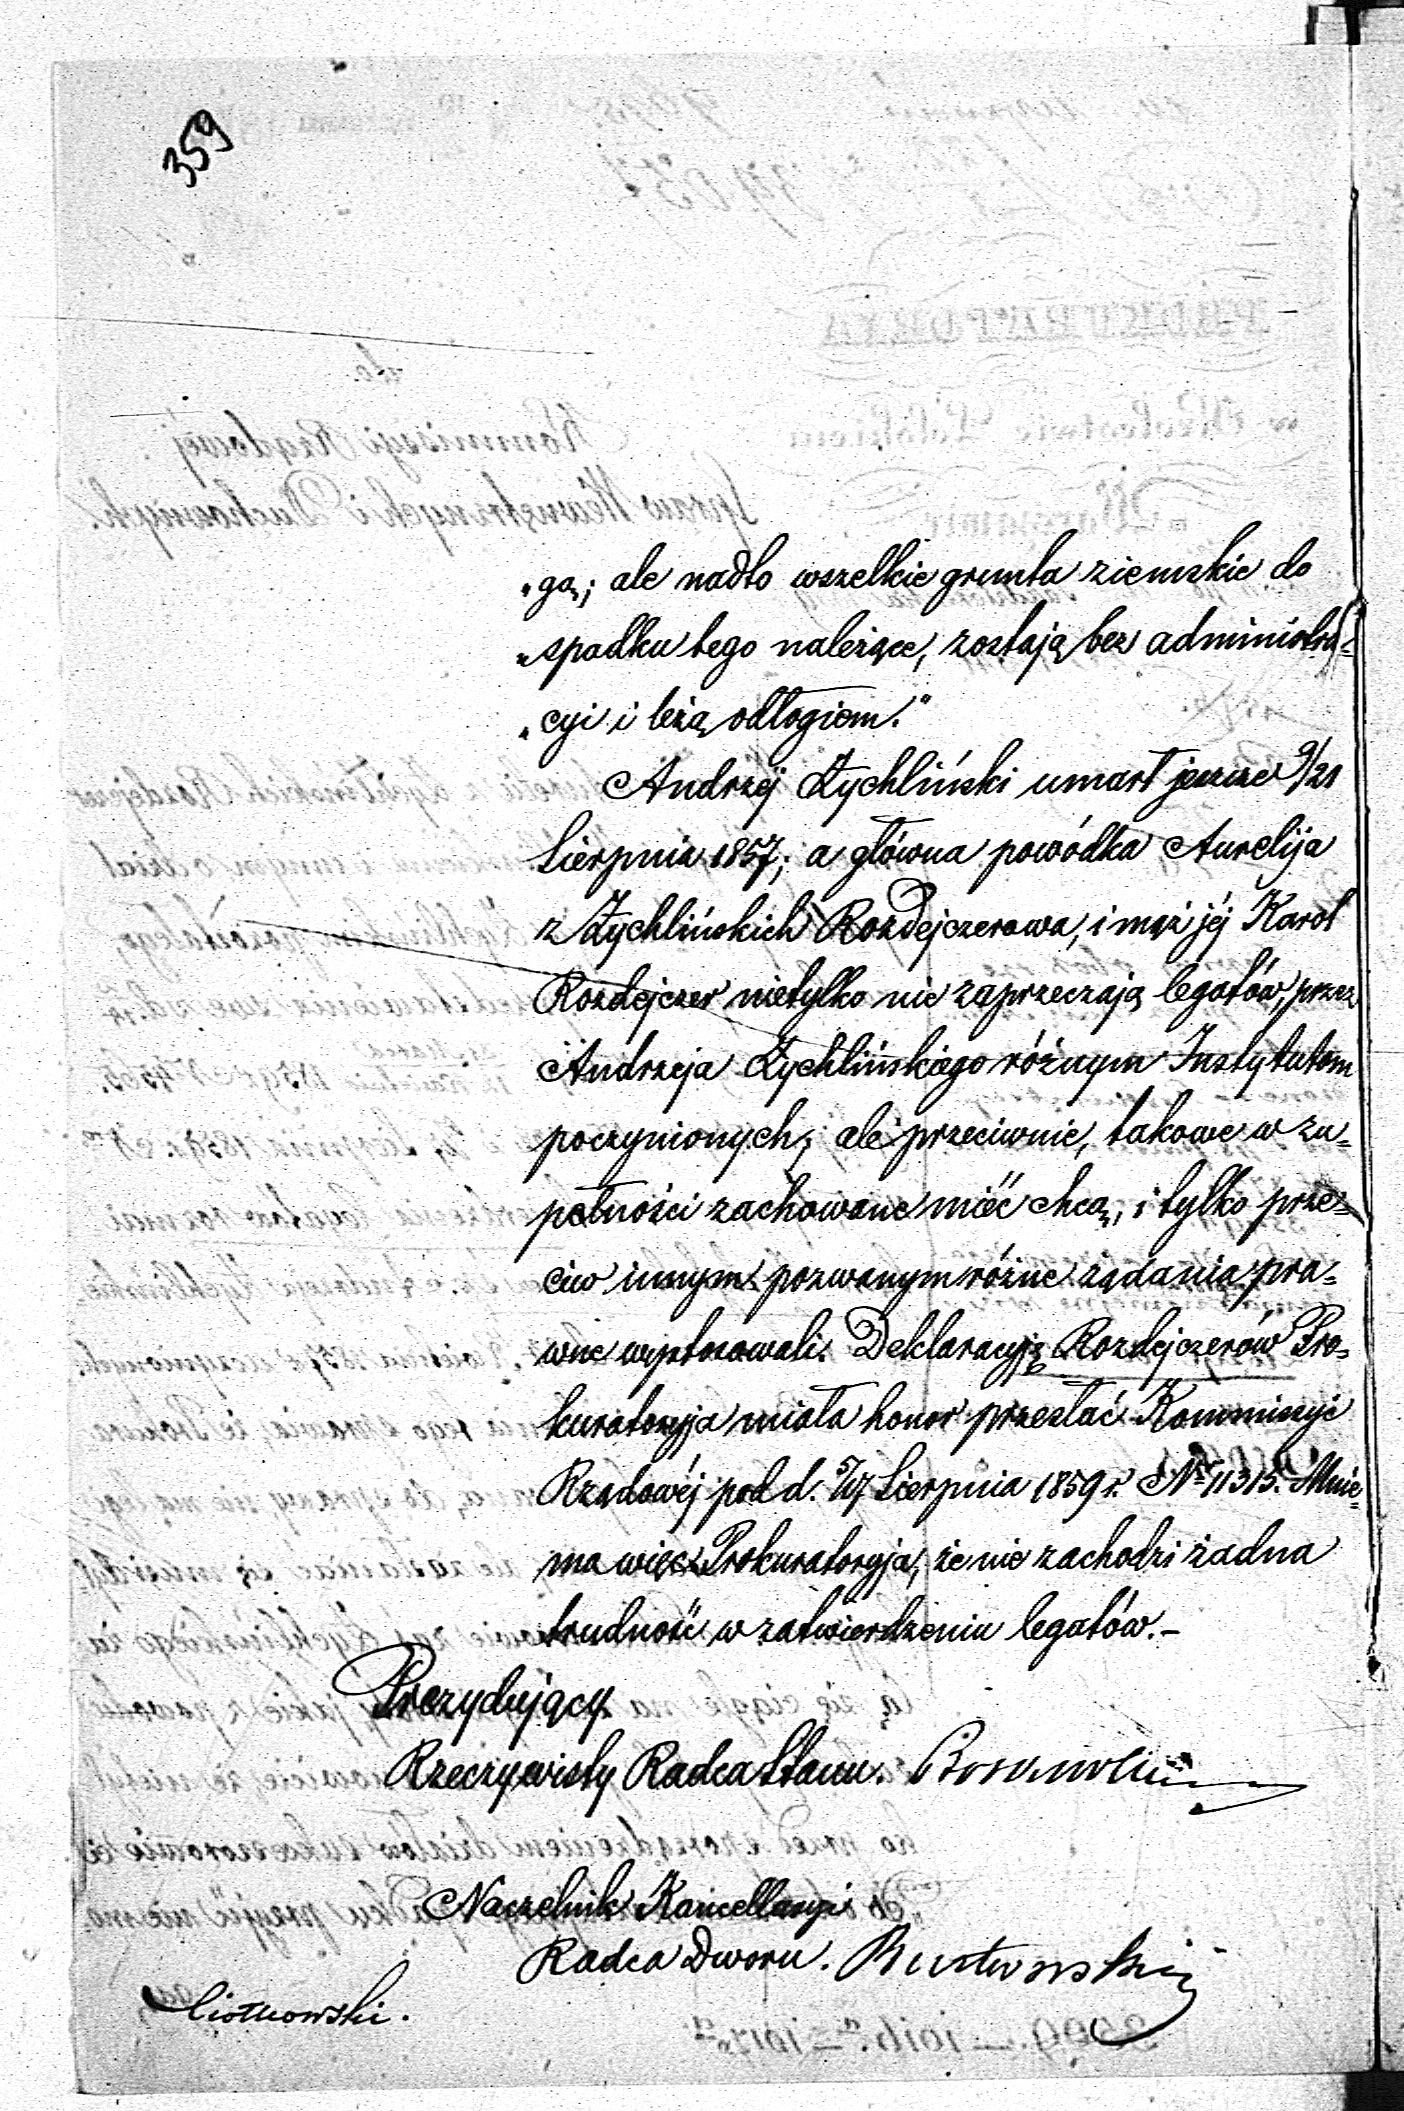 359
„gą; ale nadto wszelkie grunta ziemskie do
„spadku tego należące, zostają bez administra=
„cyi i leżą odłogiem."
Andrzej Żychliński umarł jeszcze 9/21
Sierpnia 1857; a główna powódka Aurelija
z Żychlińskich Rozdejczerowa, i mąż jéj Karol
Rozdejczer nietylko nie zaprzeczają legatów, przez
Andrzeja Żychlińskiego różnym Instytutom
poczynionych; ale przeciwnie, takowe w zu=
pełności zachowane mieć chcą; i tylko prze=
ciw innym pozwanym różne żądania pra=
wne wystosowali. Deklaracyję Rozdejczerów Pro=
kuratoryja miała honor przesłać Kommissyi
Rządowéj pod d. 5/17 Sierpnia 1859 r. Nr 11315. Mnie=
ma więc Prokuratoryja, że nie zachodzi żadna
trudność w zatwierdzeniu legatów.–
Prezydujący
Rzeczywisty Radca Stanu.
Naczelnik Kancellaryi
Radca Dworu.